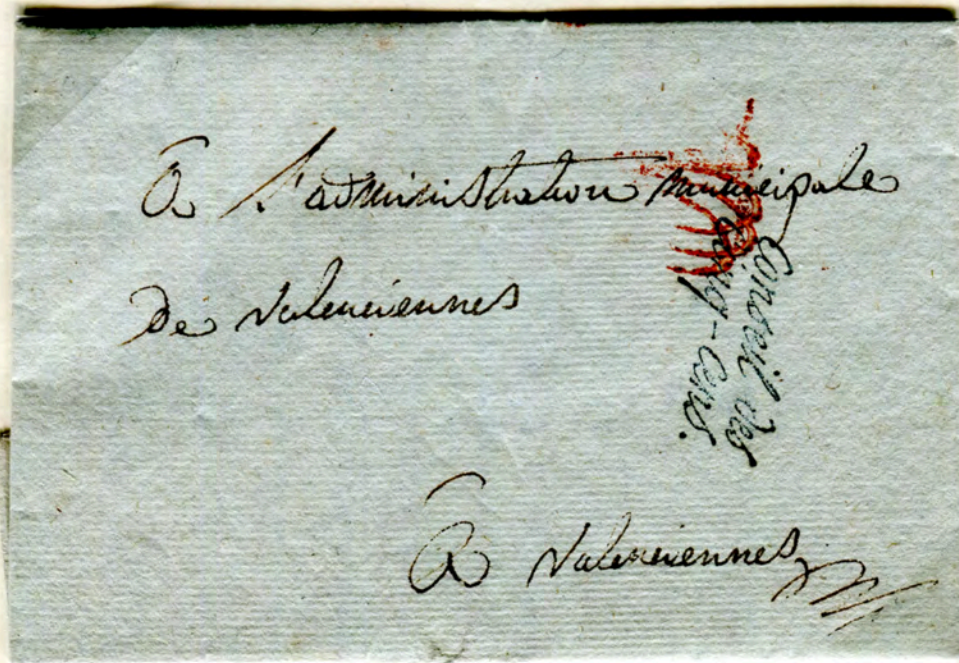 A l'administration municipale
De valenciennes
Conseil des
Cinq-Cens.
A valenciennes